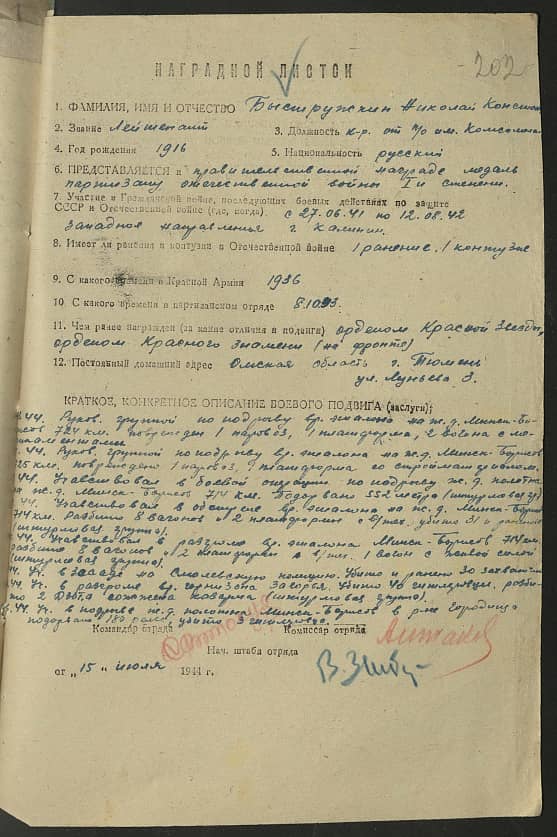 202
НАГРАДНОЙ ЛИСТОК
1. ФАМИЛИЯ, ИМЯ И ОТЧЕСТВО Быструшкин Николай Конст
2. Звание Лейтенант 3. Должность к-р. от п/о им. Комсомола
4. Год рождения 1916 5. Национальность русский
6. ПРЕДСТАВЛЯЕТСЯ к правительственной награде медаль
партизану отечественной войны I й степени.
7. Участие в Гражданской войне, последующих боевых действиях по защите
СССР и Отечественной войне (где, когда). с 27.06.41 по 12.08.42
Западная направления г. Калинин.
8. Имеет ли ранения и контузии в Отечественной войне 1 ранение, 1 контузие
9. С какого времени в Красной Армии 1936
10. С какого времени в партизанском отряде
11. Чем ранее награжден (за какие отличия и подвиги) орденом Красной Звезды,
орденом Красного знамени (на фронте)
12. Постоянный домашний адрес Омская область г. Тюмень
ул. Лунаева 3.
КРАТКОЕ, КОНКРЕТНОЕ ОПИСАНИЕ БОЕВОГО ПОДВИГА (заслуги):
44. Руков. группой по подрыву вр. эшалона на ж.д. Минск-Бо-
рисов 724 км. поврежден 1 паровоз, 1 платформа, 2 вагона с
44. Руков. группой по подрыву вр. эшалона на ж.д. Минск-Борисов
725 км. повреждено 1 паровоз, платформа со стройматериалом.
44. Участвовал в боевой операции по подрыву ж.д. полотна
на ж.д. Минск-Борисов 714 км. Подорвано 552 метра (штурмовая гр)
Участвовал в обстреле вр. эшалона на ж.д. Минск-Борисов
714 км. Разбито 8 вагонов и 2 платформы с в/тех. убито 31 и ранено
(штурмовая группа).
44. Участвовал в разгроме вр. эшалона Минск-Борисов 714 км.
разбито 8 вагонов и 2 платформы с в/тех. 1 вагон с живой силой
(штурмовая группа)
44. в засаде на Смолевскую комуцию. Убито и ранено 30 захватчик
44. разгроме вр. гарнизона Заборье. Убито 40 гитлеровцев. разби-
то 2 ДЗОТа сожжена казарма (штурмовая группа).
44. в подрыве ж.д. полотна Минск-Борисов в р-не Городище
подорвано 180 рельс, убито 3 гитлеровце.
Командир отряда Комиссар отряда
Нач. штаба отряда
от „15" июля 1944 г.